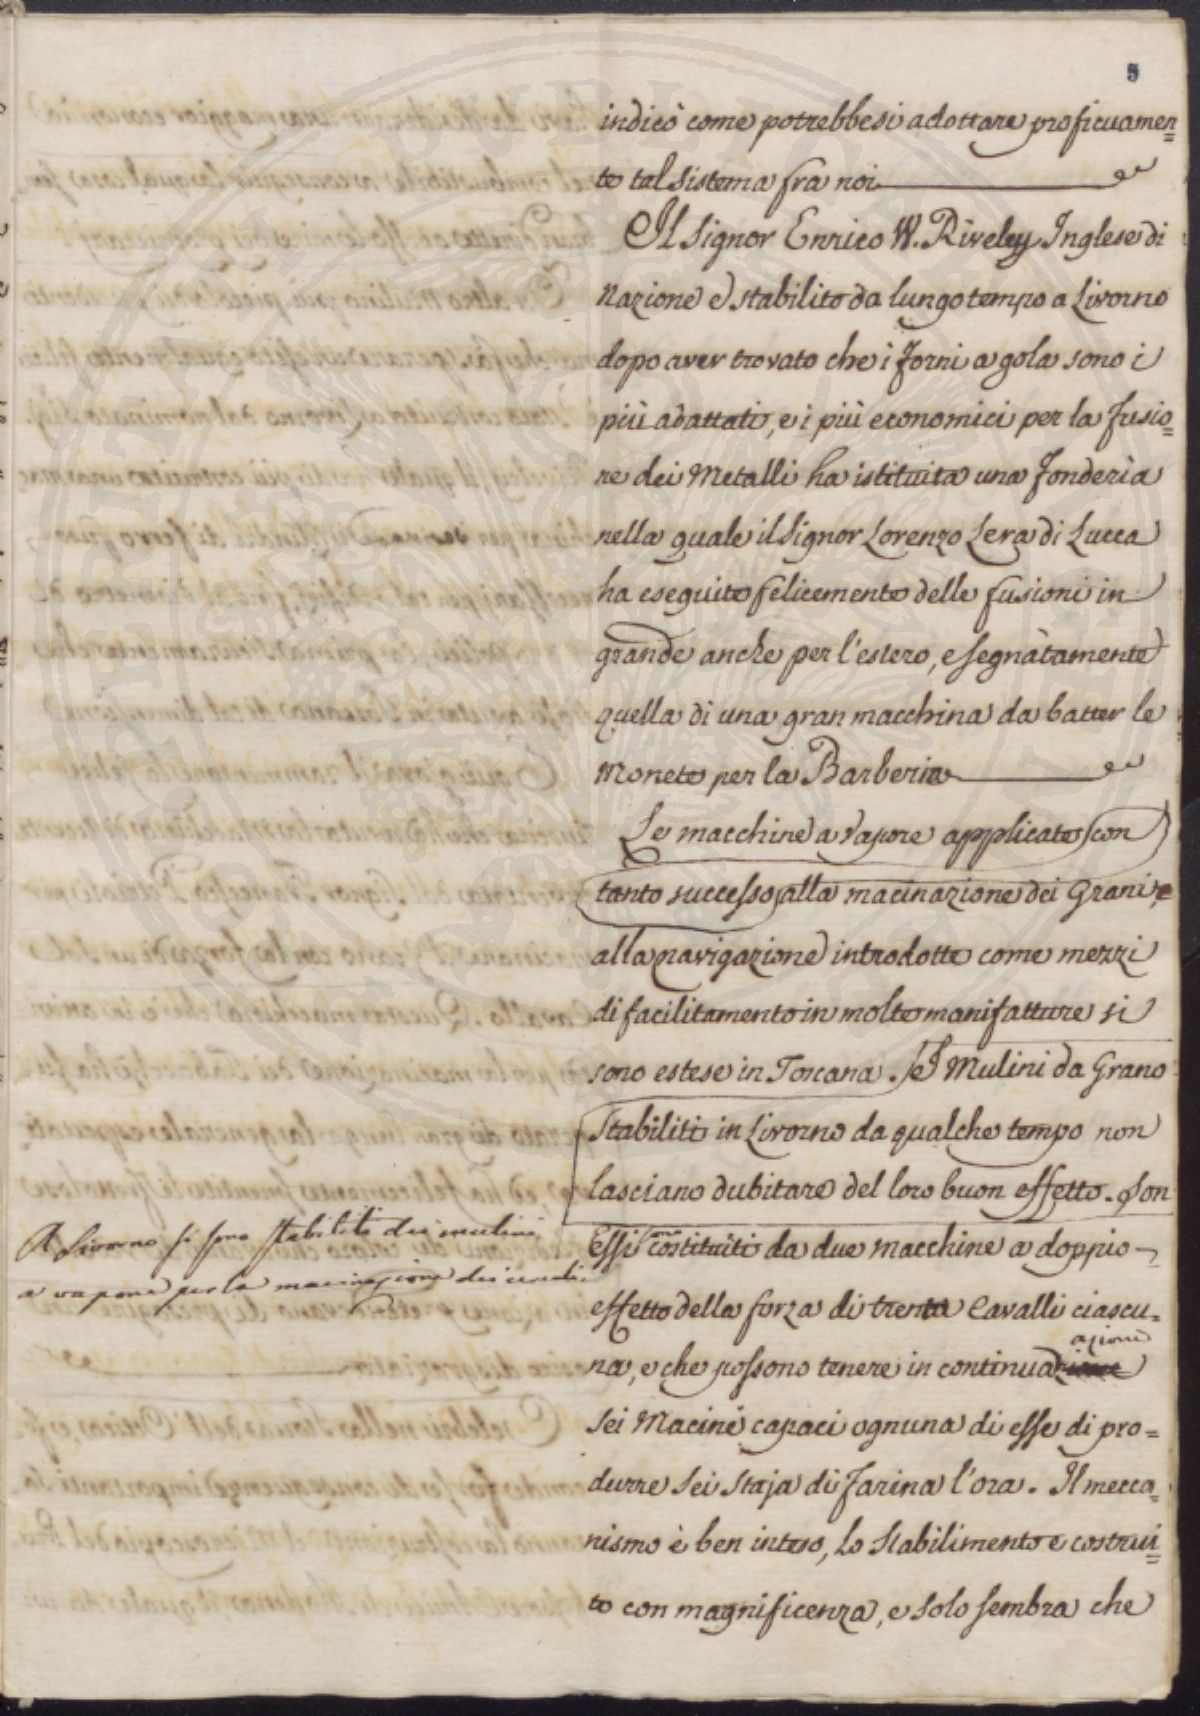 5
indicò come potrebbesi adottare proficuamen=
te tal sistema fra noi
Il Signor Enrico W. Riveley Inglese di
Nazione e stabilito da lungo tempo a Livorno
dopo aver trovato che i Forni a gola sono i
più adattati, e i più economici per la Fusio=
ne dei Metalli ha istituita una Fonderia
nella quale il Signor Lorenzo Lera di Lucca
ha eseguito felicemente delle fusioni in
grande anche per l'estero, e segnatamente
quella di una gran macchina da batter le
Monete per la Barberia
Le macchine a vapore applicate con
tanto successo alla macinazione dei Grani, e
alla navigazione introdotte come mezzi
di facilitamento in molte manifatture si
sono estese in Toscana. I Mulini da Grano
stabiliti in Livorno da qualche tempo non
lasciano dubitare del loro buon effetto. Son
A Livorno si sono stabiliti dei mulini
a vapore per la macinazione dei cereali
Essi costituiti da due macchine a doppio
effetto della forza di trenta Cavalli ciascu=
na, e che possono tenere in continua azione
sei Macine capaci ognuna di esse di pro=
durre sei staja di Farina l'ora. Il mecca=
nismo è ben inteso, lo stabilimento e costrui=
to con magnificenza, e solo sembra che